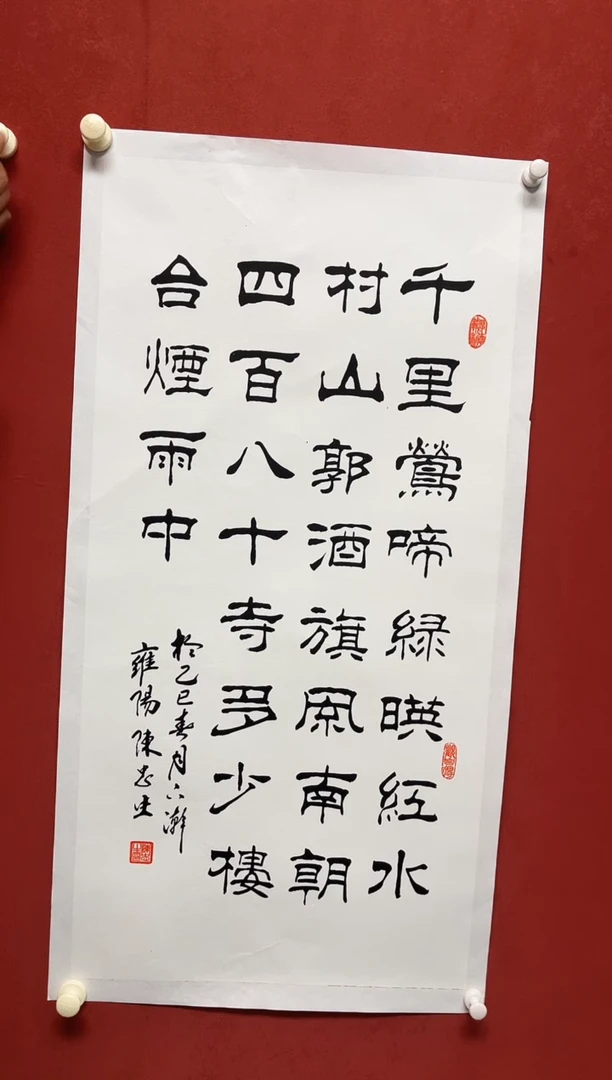 千里鶯啼緑暎紅水
村山郭酒旗風南朝
四百八十寺多少樓
台煙雨中
於乙巳春月下澣
雍陽陳